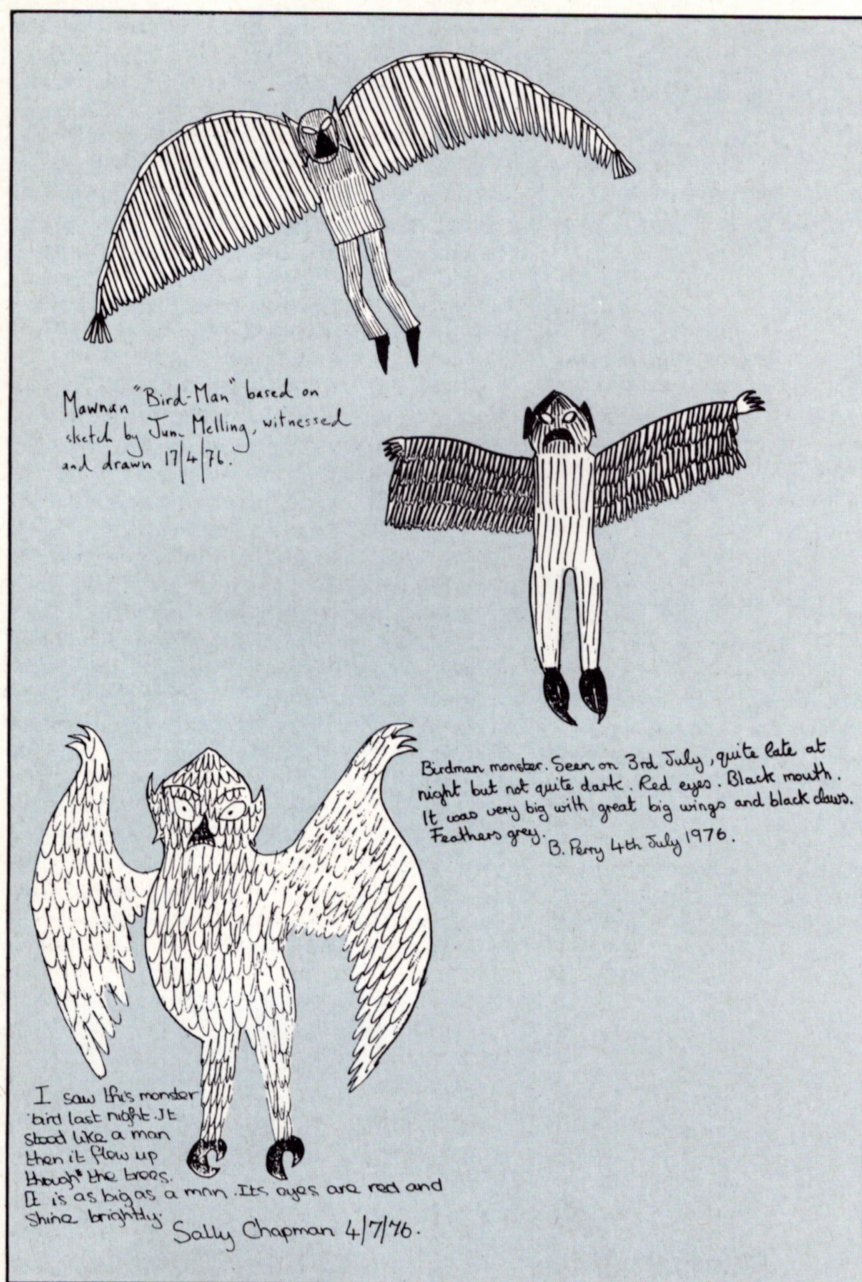 Mawnan "Bird-Man" based on
sketch by Jun. Melling, witnessed
and drawn 17/4/76.
Birdman monster. Seen on 3rd July, quite late at
night but not quite dark. Red eyes. Black mouth.
It was very big with great big wings and black claws.
Feathers grey.
B. Perry 4th July 1976.
I saw this monster
bird last night. It
stood like a man
then it flew up
through the trees.
It is as big as a man. Its eyes are red and
shine brightly.
Sally Chapman 4/7/76.